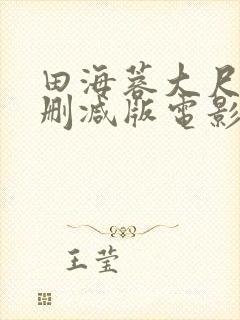 田海蓉大尺
删减版電影
王莹